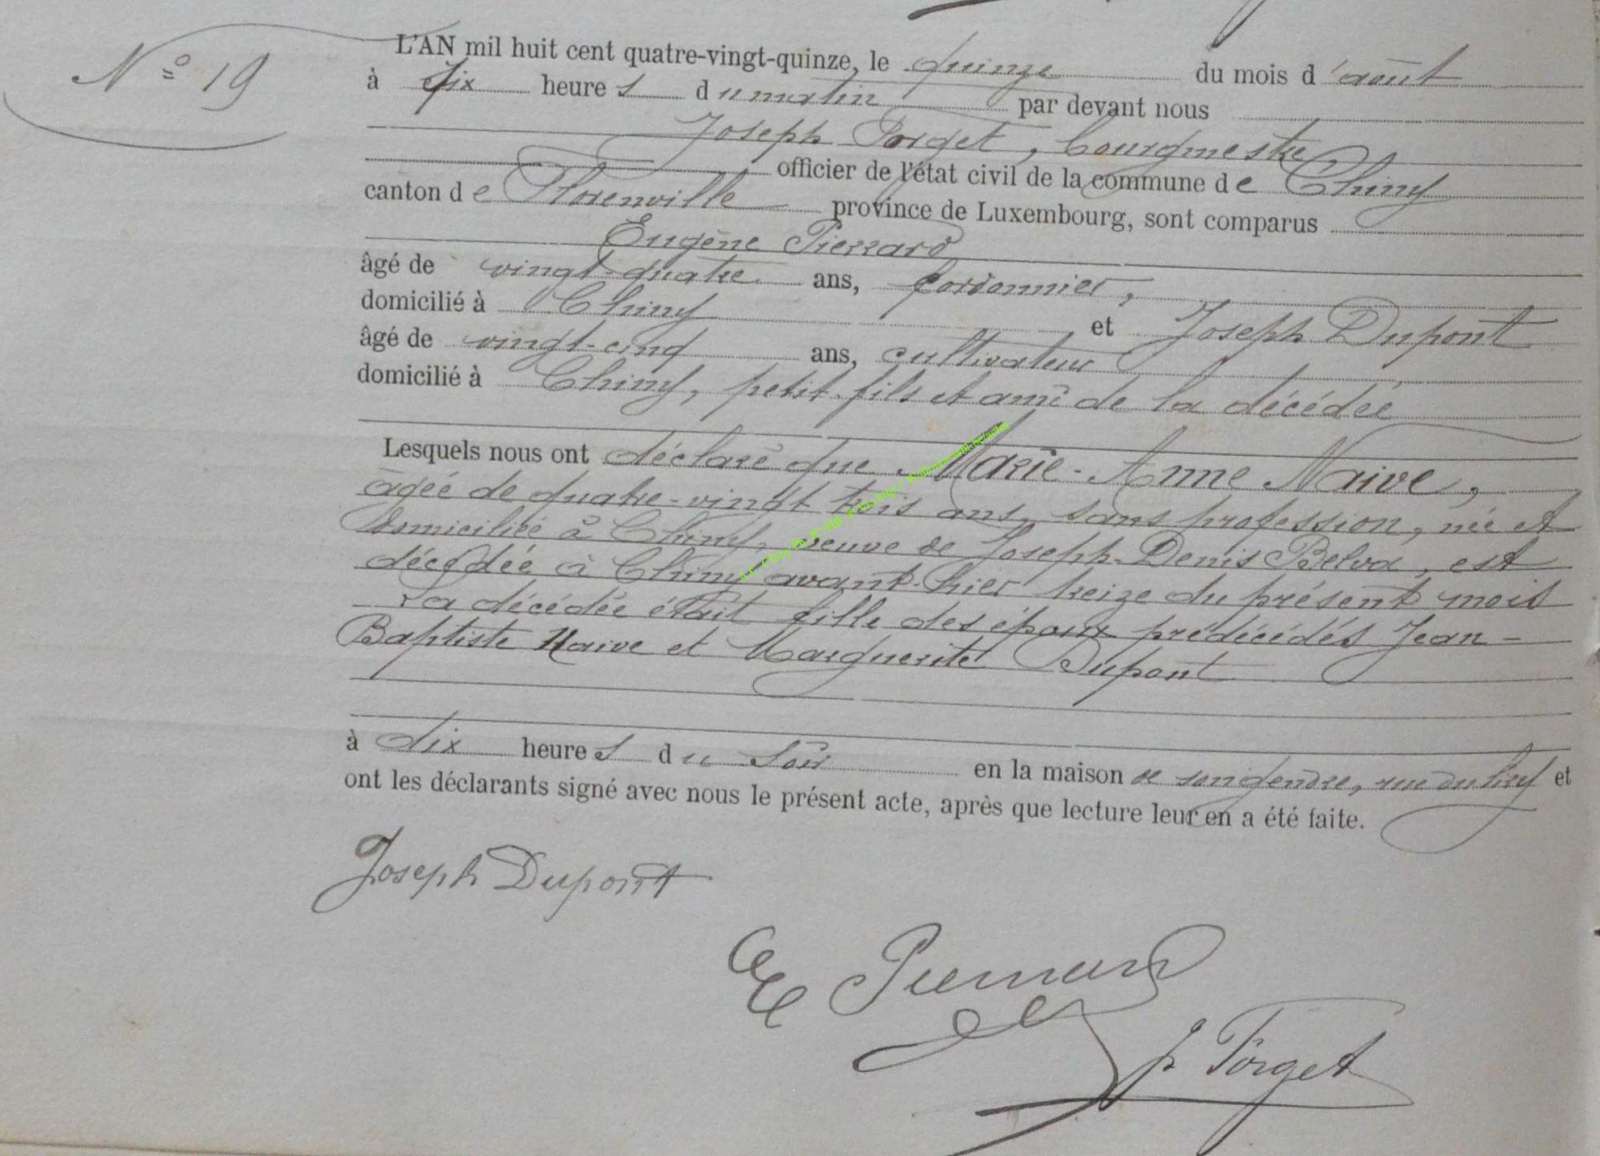 N° 19
L'AN mil huit cent quatre-vingt-quinze, le quinze du mois d'août
à dix heures du matin par devant nous
Joseph Forget, bourgmestre
officier de l'état civil de la commune de Chiny
canton de Florenville province de Luxembourg, sont comparus
Eugène Pierrard
âgé de vingt-quatre ans, cordonnier,
domicilié à Chiny et Joseph Dupont
âgé de vingt-cinq ans, cultivateur
domicilié à Chiny, petit-fils et ami de la décédée
Lesquels nous ont déclaré que Marie-Anne Naive,
âgée de quatre-vingt trois ans, sans profession, née et
domiciliée à Chiny, veuve de Joseph-Denis Belva, est
décédée à Chiny avant-hier treize du présent mois
La décédée était fille des époux prédécédés Jean-
Baptiste Naive et Marguerite Dupont
à dix heures du soir en la maison de son gendre, rue du et
ont les déclarants signé avec nous le présent acte, après que lecture leur en a été faite.
Joseph Dupont
E Pierrard
J. Forget